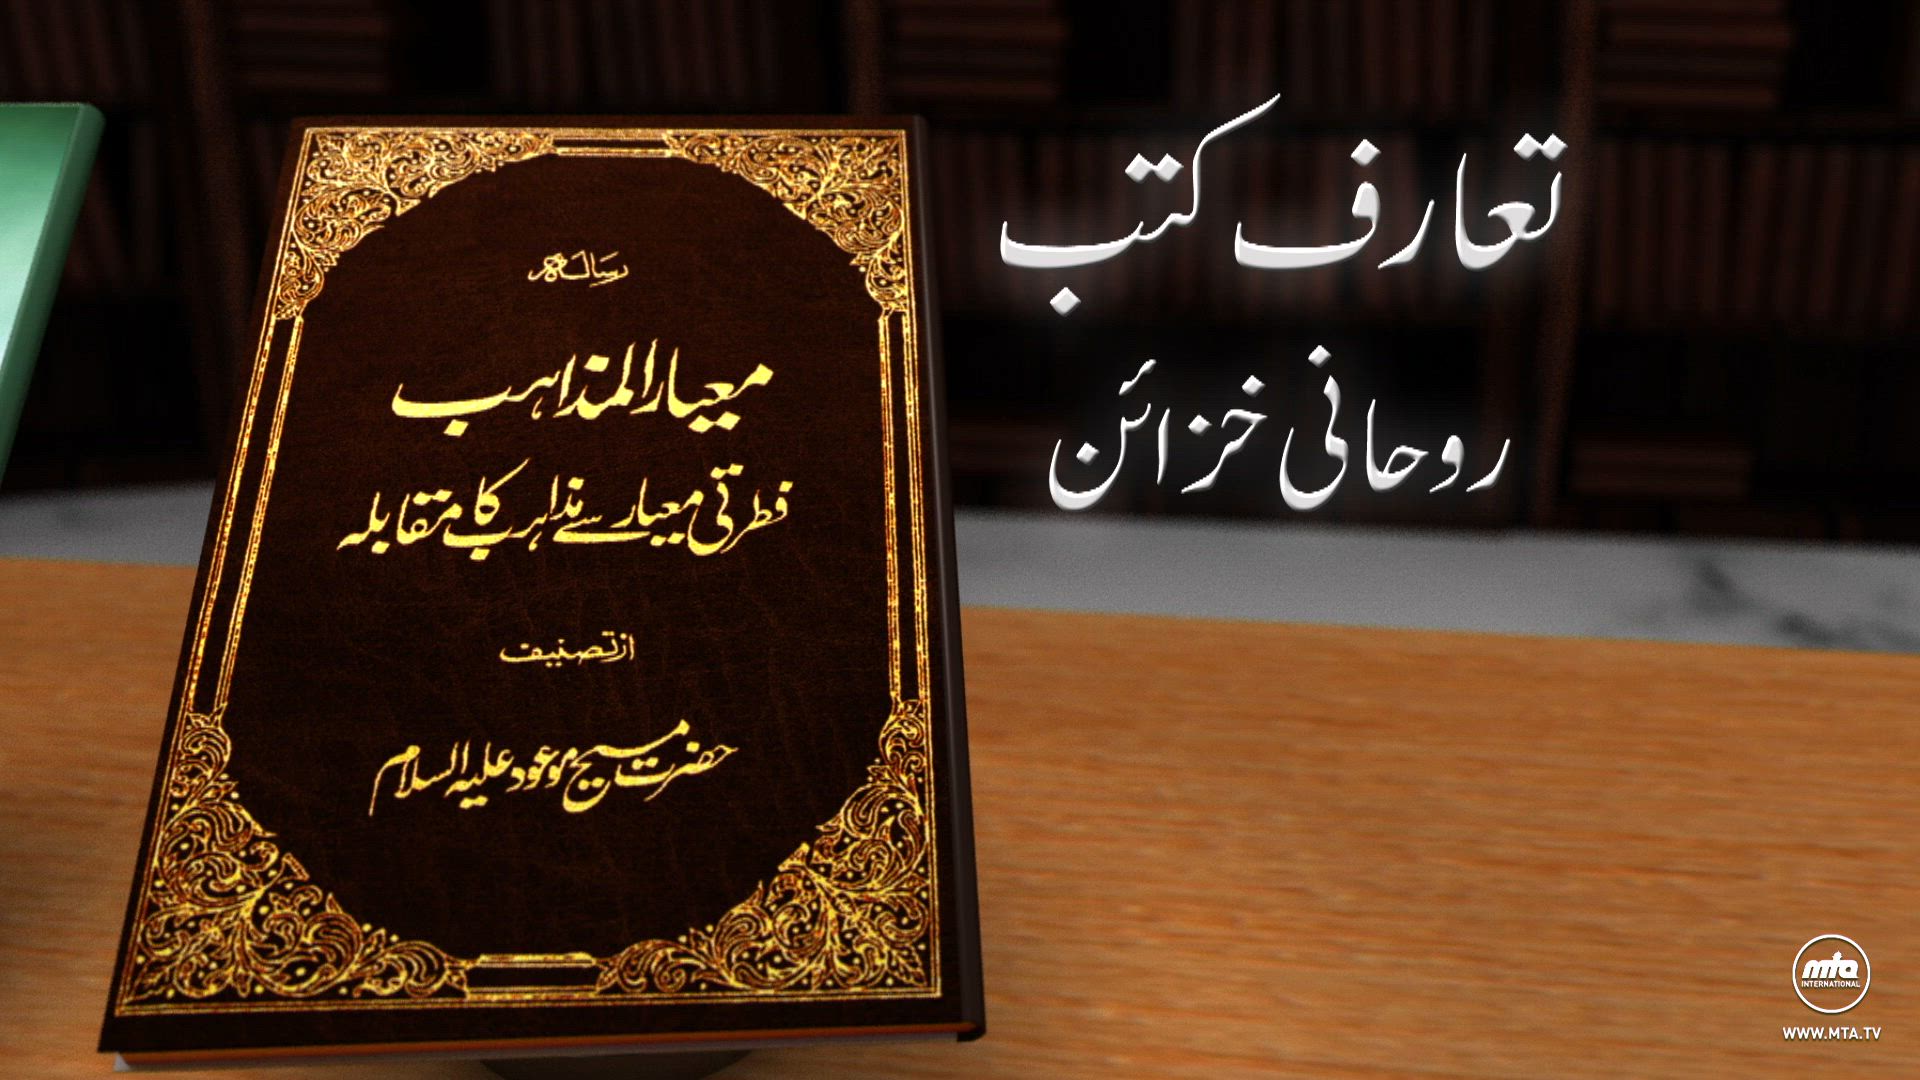 رسالہ
معیار المذاہب
فطرتی معیار سے مذاہب کا مقابلہ
از تصنیف
حضرت مسیح موعود علیہ السلام
تعارف کتب
روحانی خزائن
mta
INTERNATIONAL
WWW.MTA.TV